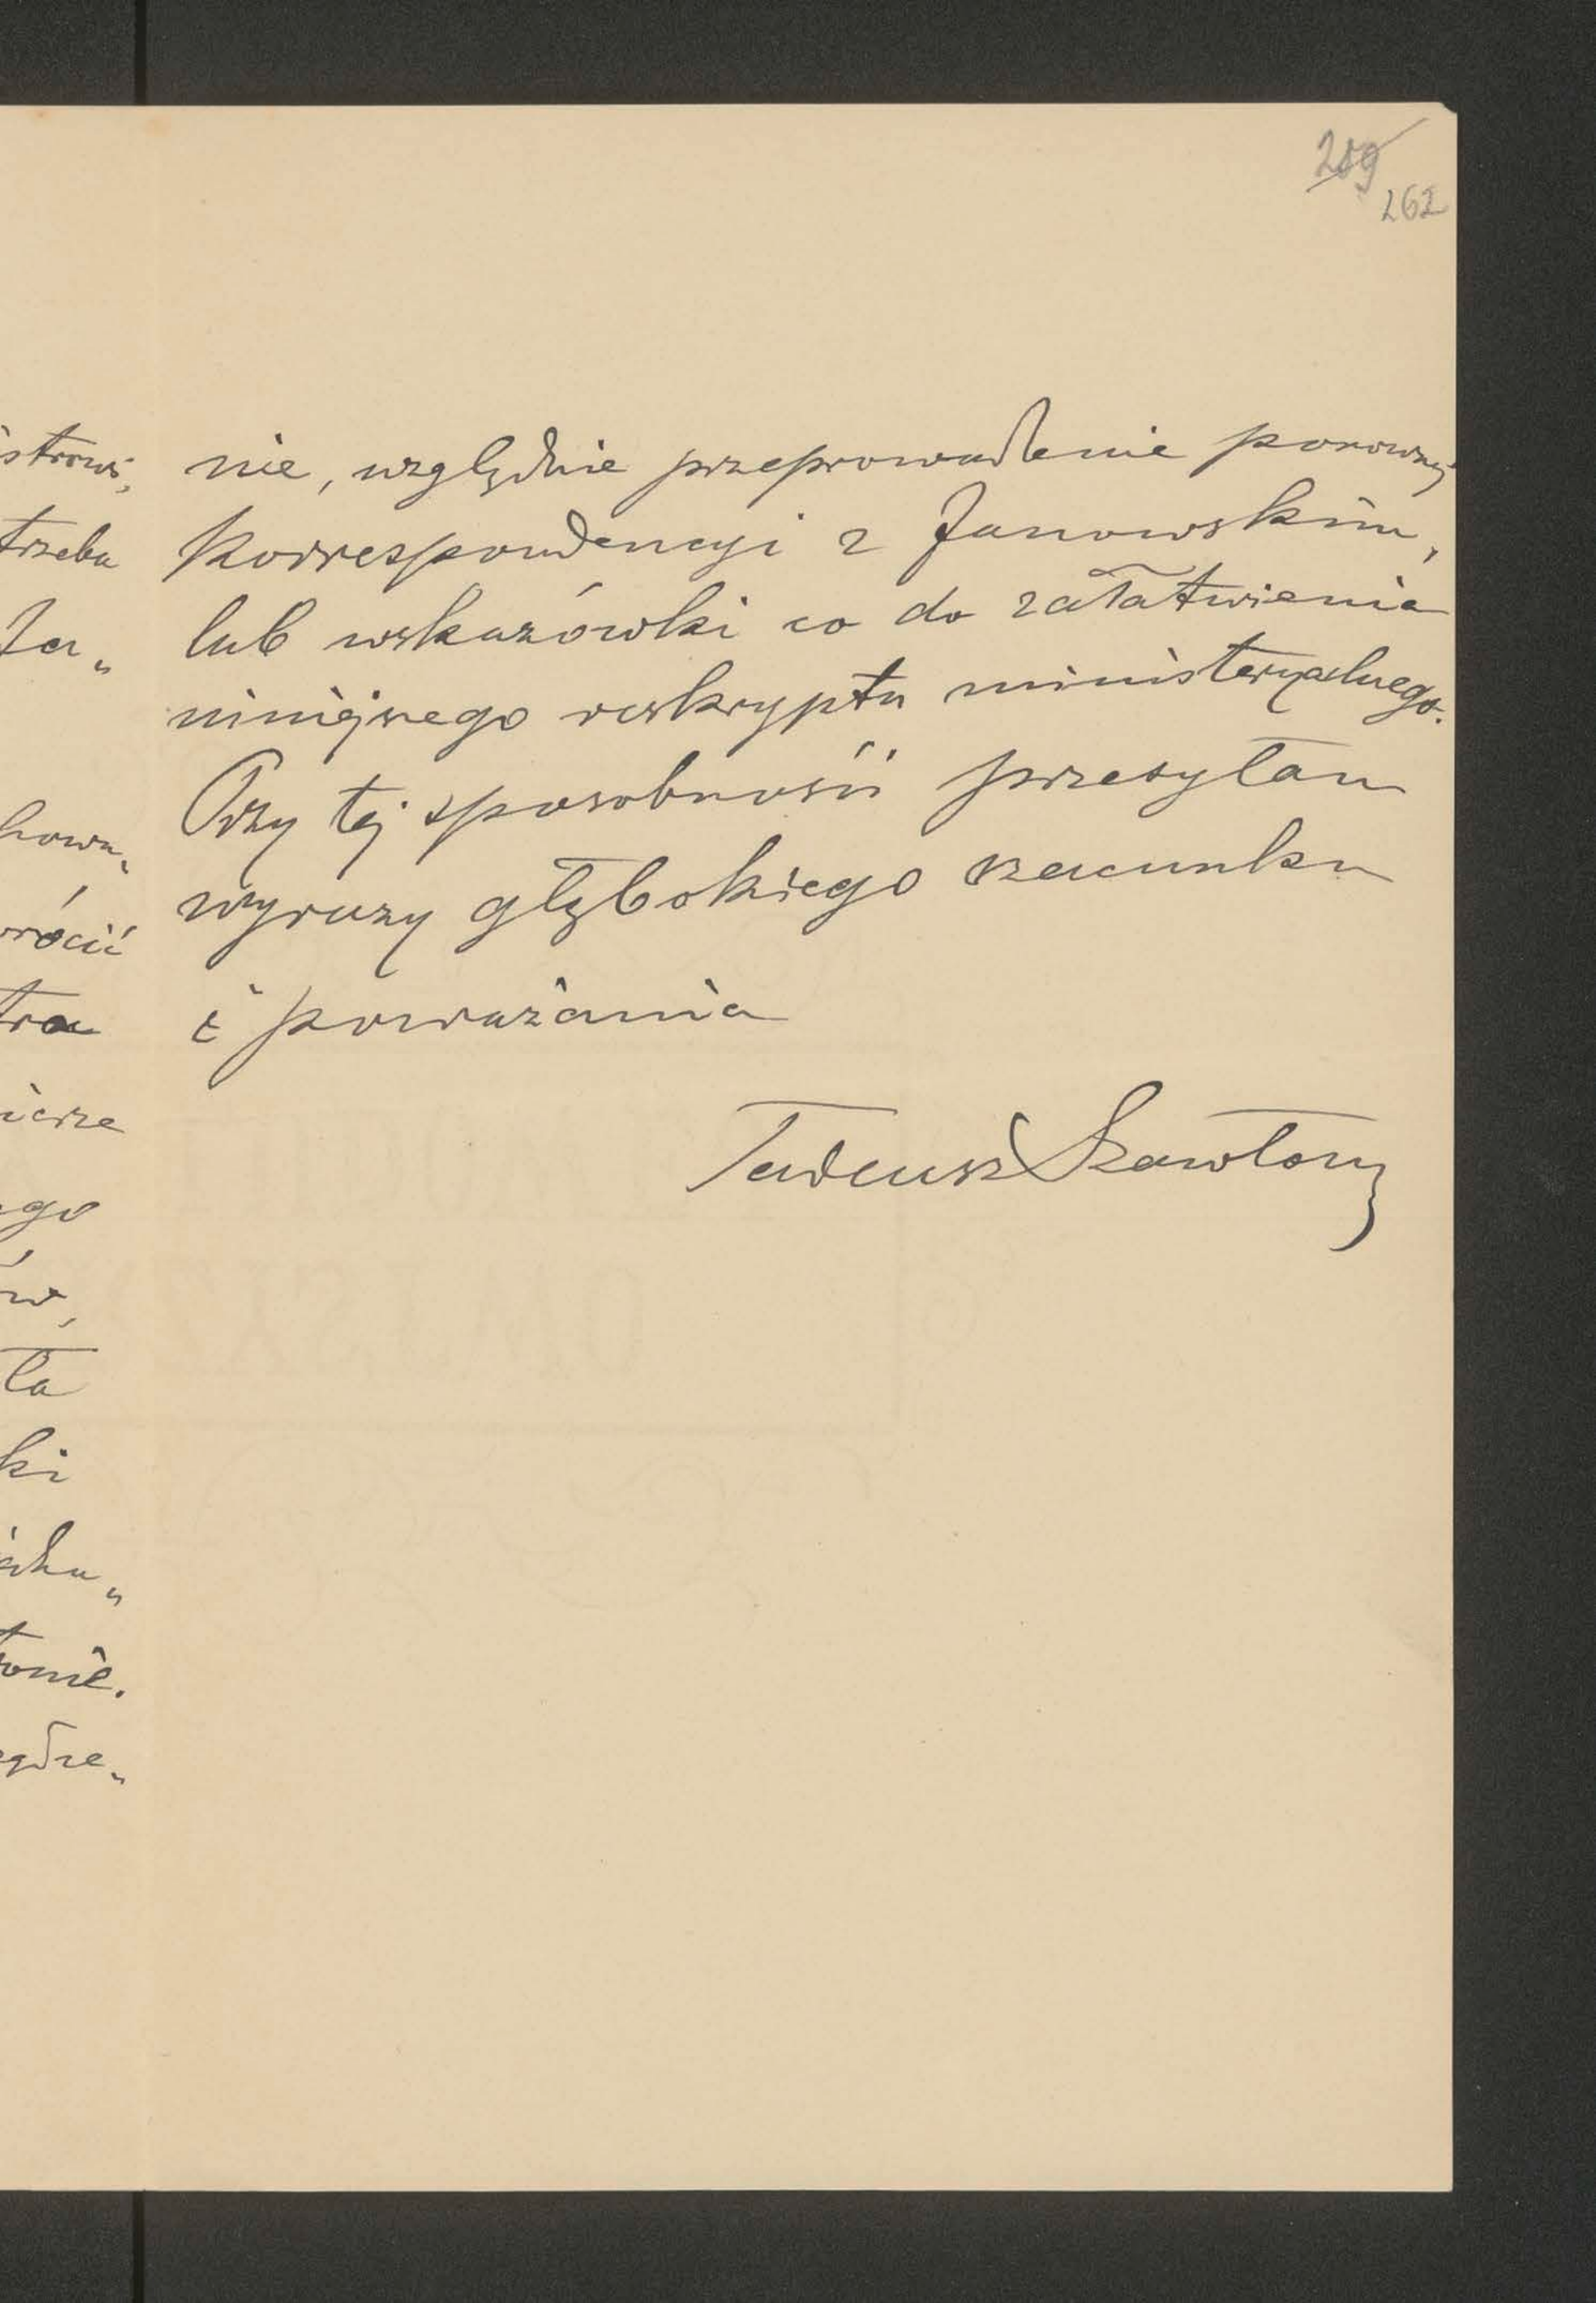 262
nie, względnie przeprowadzenie ponownej
korrespondencyi z Janowskim,
lub wskazówki co do załatwienia
niniejszego reskryptu ministeryalnego.
Przy tej sposobności przesyłam
wyrazy głębokiego szacunku
i poważania
Tadeusz
trzeba
Ja„
rócić
tra
ego
ów,
ła
ki